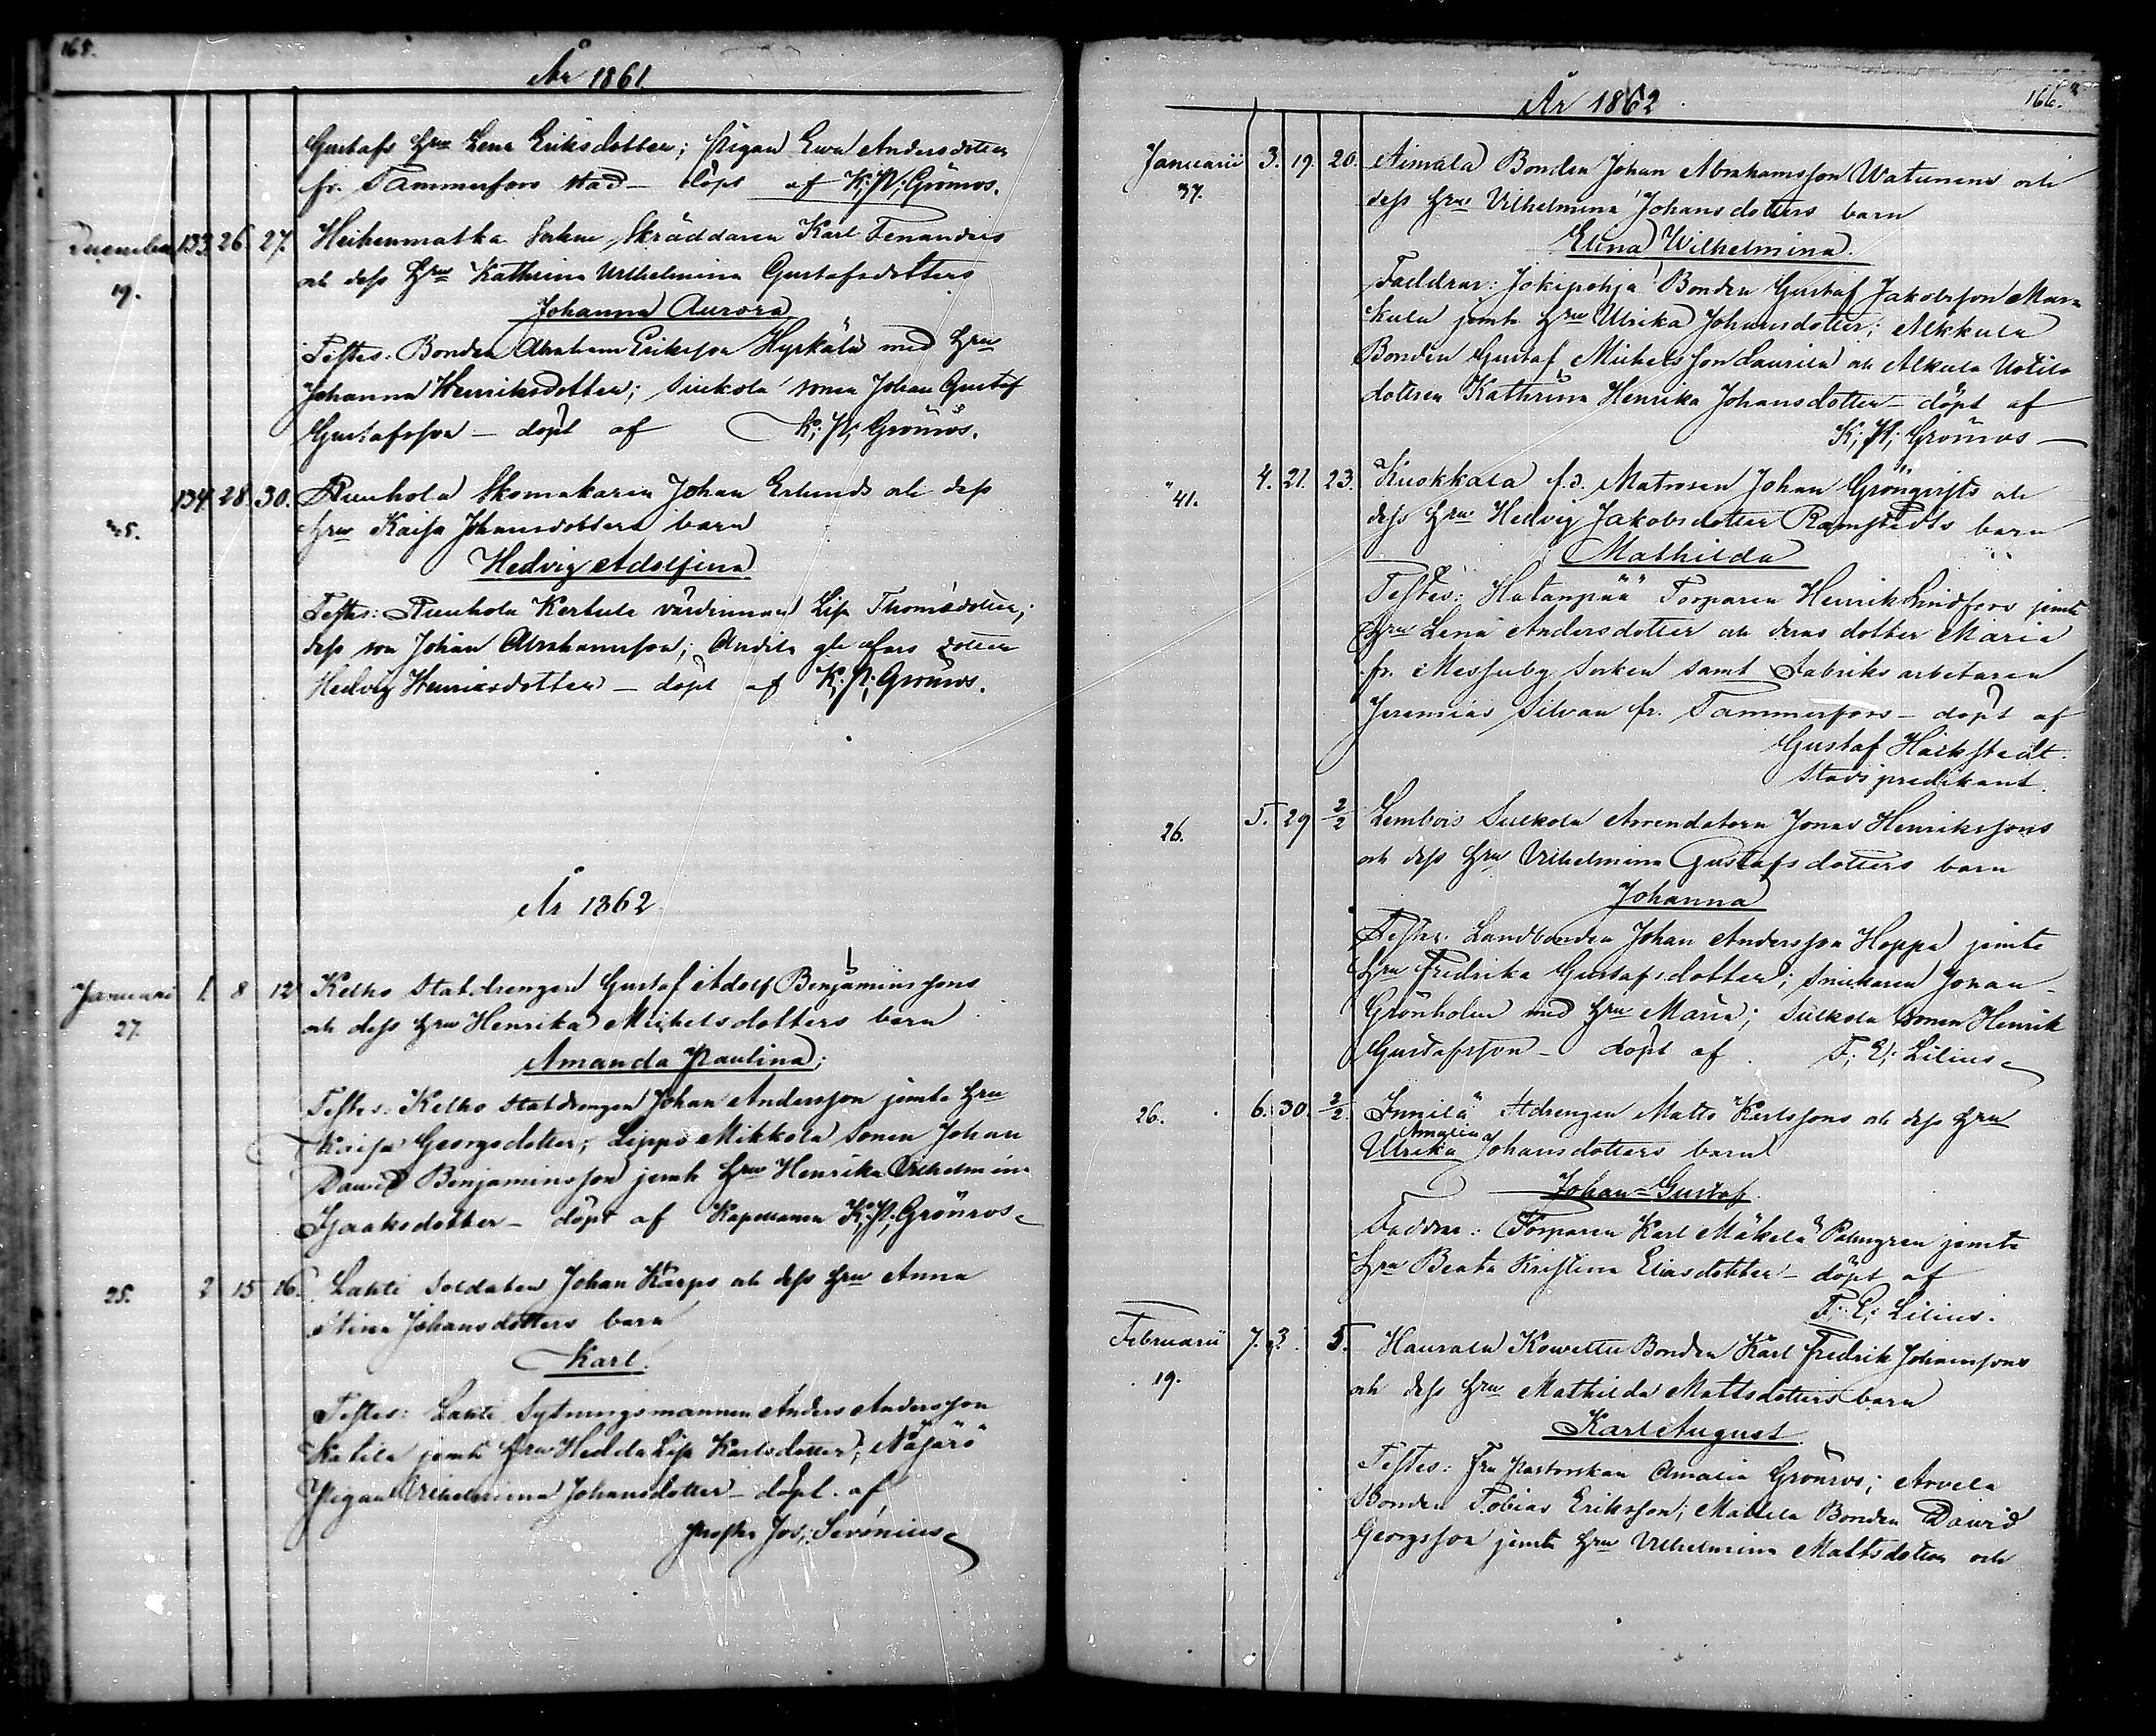 165.
År 1861
Gustafs hru Lena Eriksdotter; Pigan Ewa Andersdotter
fr. Tammerfors stad – döpt af K; N; Grönros.
December 133. 26. 27. Heikenmatka Sockne Skräddaren Karl Fenanders
19. och dess hru Kathrina Wilhelmina Gustafsdotters
Johanna Aurora
Testes: Bonden Abraham Eriksson Hyrkälä med hru
Johanna Henriksdotter; sonen Johan Gustaf
Gustafsson – döpt af K; N; Grönros.
134. 28. 30. Skomakaren Johan Erlunds och dess
hru Kaisa Johansdotters barn
Hedvig Adolfina
Testes: värdinnan Lisa Thomædotter;
dess son Johan Abrahamsson; dotter
Hedvig Henriksdotter – döpt af K; N; Grönros.
År 1862
Januari 1. 8 12 Kelho Statdrengen Gustaf Adolf Benjaminssons
27. och dess hru Henrika Michelsdotters barn
Amanda Paulina;
Testes: Kelho Statdrengen Johan Andersson jemte hru
Kaisa Georgsdotter; Lippo Mikkola sonen Johan
Dawid Benjaminsson jemte hru Henrika Wilhelmina
Isaaksdotter – döpt af Kapellanen K; N; Grönros
25. 2 15 16. Lahti Soldaten Johan Karps och dess hru Anna
Stina Johansdotters barn
Karl.
Testes: Lahti Sytningsmannen Anders Andersson
Katila jemte hru Hedda Lisa Karlsdotter; Näsjärö
Pigan Wilhelmina Johansdotter – döpt af
Jos; Sevonius
År 1862
166.
Januarii 3. 19. 20. Aimala Bonden Johan Abrahamsson Watunens och
37. dess hrus Vilhelmina Johansdotters barn
Elina Wilhelmina.
Faddrar: Jokipohja Bonden Gustaf Jakobsson Mar-
kula jemte hru Ulrika Johansdotter; Alkkula
Bonden Gustaf Michelsson Laurila och Alkula Uotila
dottren Kathrina Henrika Johansdotter – döpt af
K; N; Grönros –
" 41. 4. 21. 23. Kuokkala f.d. Matrosen Johan Grönqvists och
dess hru Hedvig Jakobsdotter Ramstedts barn
Mathilda
Testes: Hatanpää Torparen Henrik Lindfors jemte
hru Lena Andersdotter och deras dotter Maria
fr. Messuby Socken samt Fabriks arbetaren
Jeremias Silvan fr. Tammerfors – döpt af
Gustaf
Stads predikant.
26. 5. 29 2/2 Lembois Sulkola Arrendatorn Jonas Henrikssons
och dess hru Vilhelmina Gustafsdotters barn
Johanna
Testes: Landbonden Johan Andersson Hoppa jemte
hru Fredrika Gustafsdotter; Snickaren Johan
Grönholm med hru Maria; Sulkola sonen Henrik
Gustafsson – döpt af F; E; Lilius
26. 6. 30. 2/2. Innilä Stdrengen Matts Karlssons och dess hru
Amalia
Ulrika Johansdotters barn
Johan Gustaf.
Faddrar: Torparen Karl Mäkelä Palmgren jemte
hru Beata Kristina Eliasdotter – döpt af
F; E; Lilius.
Februarii 7. 3. 5. Haurala Kowettu Bonden Karl Fredrik Johanssons
19. och dess hru Mathilda Mattsdotters barn
Karl August
Testes: Fru Pastorskan Amalia Grönros; Arvela
Bonden Tobias Eriksson; Mattila Bonden Dawid
Georgsson jemte hru Vilhelmina Mattsdotter och